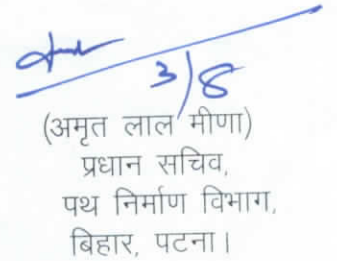 3/8
(अमृत लाल मीणा)
प्रधान सचिव,
पथ निर्माण विभाग,
बिहार, पटना।